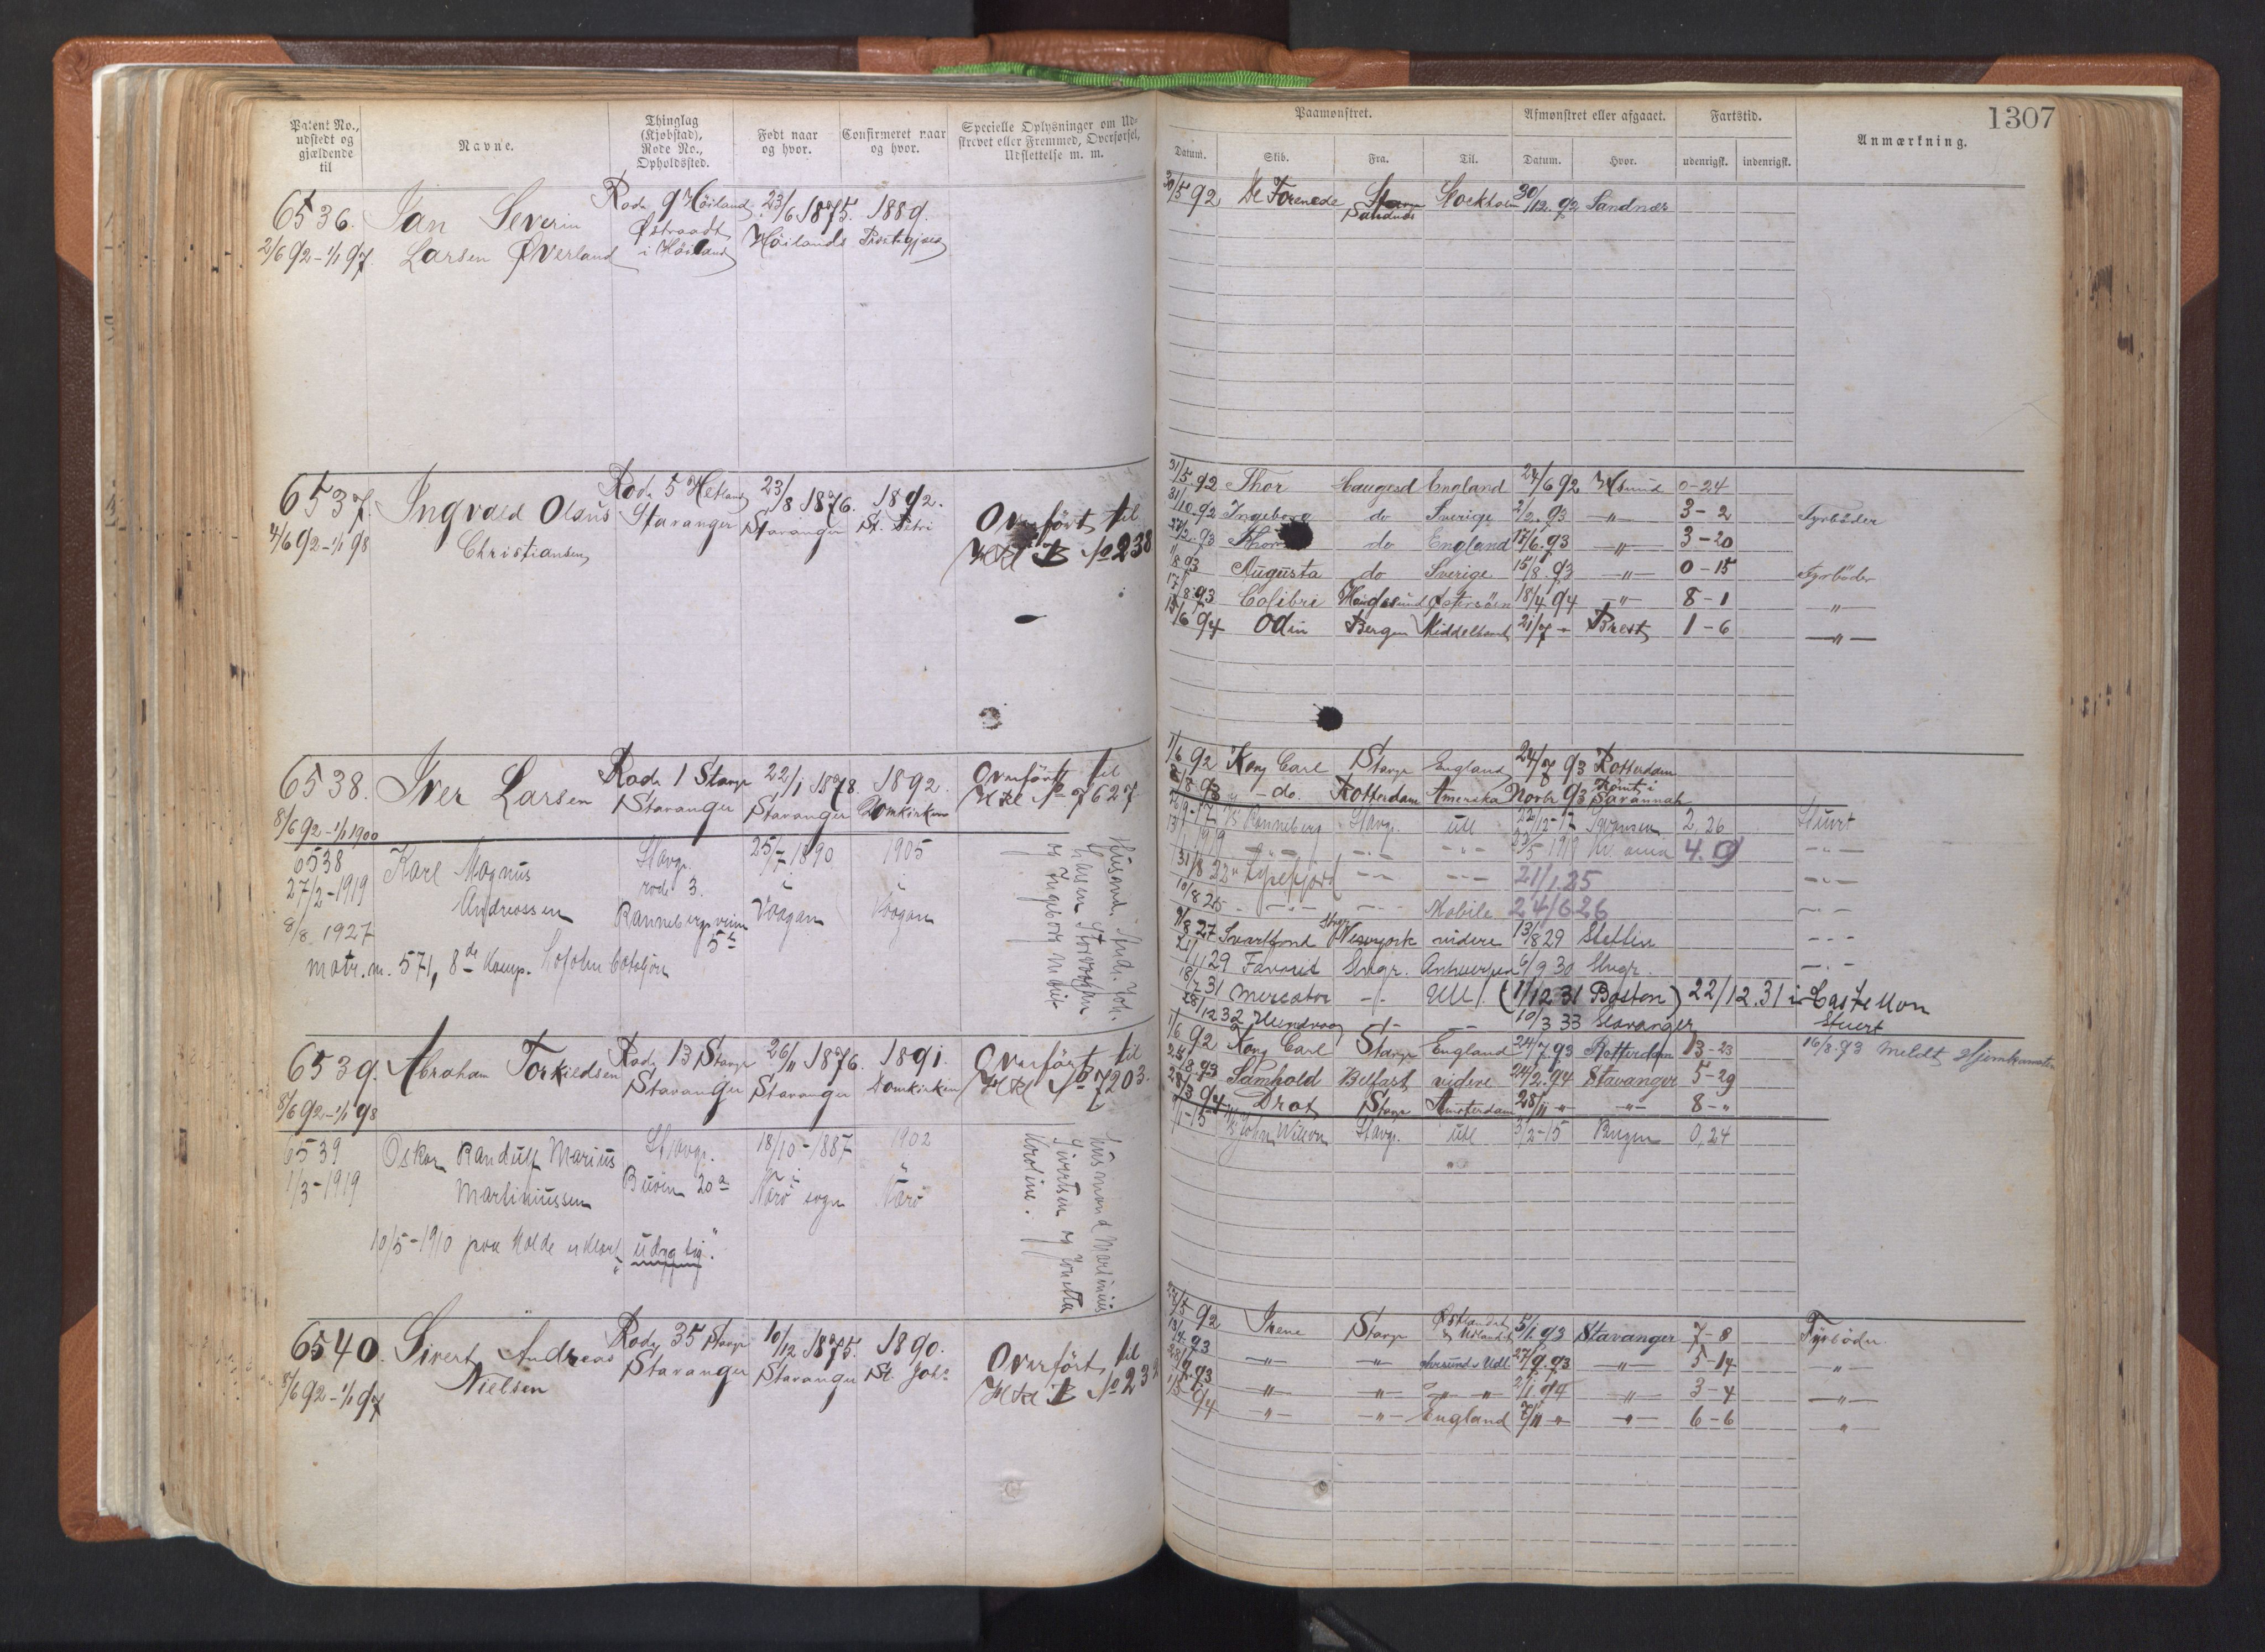 1307
Patent No., udstedt og gjældende til
Navne.
Thinglag (Kjøbstad), Rode No., Opholdssted.
Født naar og hvor.
Confirmeret naar og hvor.
Specielle Oplysninger om Udskrevet eller Fremmed, Overførsel, Udslettelse m. m.
Paamønstret.
Afmønstret eller afgaaet.
Fartstid.
Anmærkning.
Datum. Skib. Fra. Til. Datum. Hvor. udenrigsk. indenrigsk.
6536. Jan Severin Rode 9 Höiland 23/6 1875. 1889.
2/6 92 - 1/1 97. Larsen Øverland Østraadt i Höiland Höilands Præstegjæld
30/5 92 De Forenede Stavgr Sandnes Stockholm 30/12. 92 Sandnæs
6537. Ingvald Olaus Rode 5 Hetland 23/8 1876. 1892.
4/6 92 - 1/1 98 Christiansen Stavanger Stavanger St. Petri
Overført til
HRl B No 238
31/5 92 Thor Haugesd England 24/6 92 Hsund 0-24
31/10.92 Ingeborg do Sverige 2/2. 93 -"- 3-2 Fyrbøder
93 Thor do England 17/6. 93 -"- 3-20
1/8 93 Augusta do Sverige 15/8. 93 -"- 0-15 Fyrbøder
17/8.93 Colibri Haugesund Østersöen 18/4 94 -"- 8-1 -"-
15/6 94 Odin Bergen Middelhavet 21/7 - Brest 1-6 -"-
6538. Iver Larsen Rode 1 Stavgr 22/1 1878. 1892.
8/6 92 - 1/1 1900 Stavanger Stavanger Domkirken
Overført til
HRl No 7627
1/6 92 Kong Carl Stavgr England 24/7 93 Rotterdam
2/8 93 - do. Rotterdam Amerika Novbr 93 Römt i Savannah
6538 Karl Magnus Stavgr. 25/7-1890 1905
27/2-1919 Andreassen rode 3. Vaagan Vaagan
8/8. 1927 Rannebergsveien 5
matr. nr. 571, 8de Komp. Lofoten Bataljon
Husmand Andr. Joh.
Larsen Storvaagan
og Ingeborg
17 Ranneberg Stavgr. Utl 22/12-17 Swansea 2, 26 Stuert
1919 -"- -"- -"- 1919 4. 9 -"-
31/8 22 -"- -"- 21/1.25 -"-
10/8 25 -"- -"- Mobile 24/6 26 -"-
9/8 27 Svartfond Newyork videre 13/8 29 Stettin -"-
29 Favorit Stvgr. Antwerpen 6/9 30 Stvgr. -"-
18/7 31 Mercator -"- Utl. (11/12 31 Boston) 22/12.31 i Castellon
28/12 32 Hundvaag -"- -"- 10/3 33 Stavanger Stuert
6539. Abraham Torkildsen Rode 13 Stavgr 26/11 1876. 1891.
8/6 92 - 1/1 98 Stavanger Stavanger Domkirken
Overført til
HRl No 7203.
1/6 92 Kong Carl Stavgr England 24/7.93 Rotterdam 13-23 16/8.93 meldt Hjemkomsten
8.93 Samhold Belfast videre 24/2.94 Stavanger 5-29
3 94 Drot Stavgr Amsterdam 28/11 " -"- 8-"
6539 Oskar Randulf Marius Stavgr. 18/10-1887 1902
1/3-1919 Martiniussen Buøen 20a Nærö sogn Nærö
10/5-1910 paa Molde erklært "udygtig".
Husmand Martinius
Sivertsen og
Karoline.
1/1-15 John Wilson Stavgr. Utl 3/2-15 Bergen 0, 24
6540. Sivert Andreas Rode 35 Stavgr 10/12 1875. 1890.
8/6 92 - 1/1 97 Nielsen Stavanger Stavanger St. Johs
Overført til
HRl B No 232
27/5 92 Irene Stavgr Østlandet og Utlandet 5/1.93 Stavanger 7-8 Fyrbøder
14/4.93 -"- -"- Aalesund & Udl. 27/9.93 -"- 5-14 -"-
28/9.93 -"- -"- -"- 2/1 94 -"- 3-4 -"-
1/5 94 -"- -"- England 7/11 " -"- 6-6 -"-